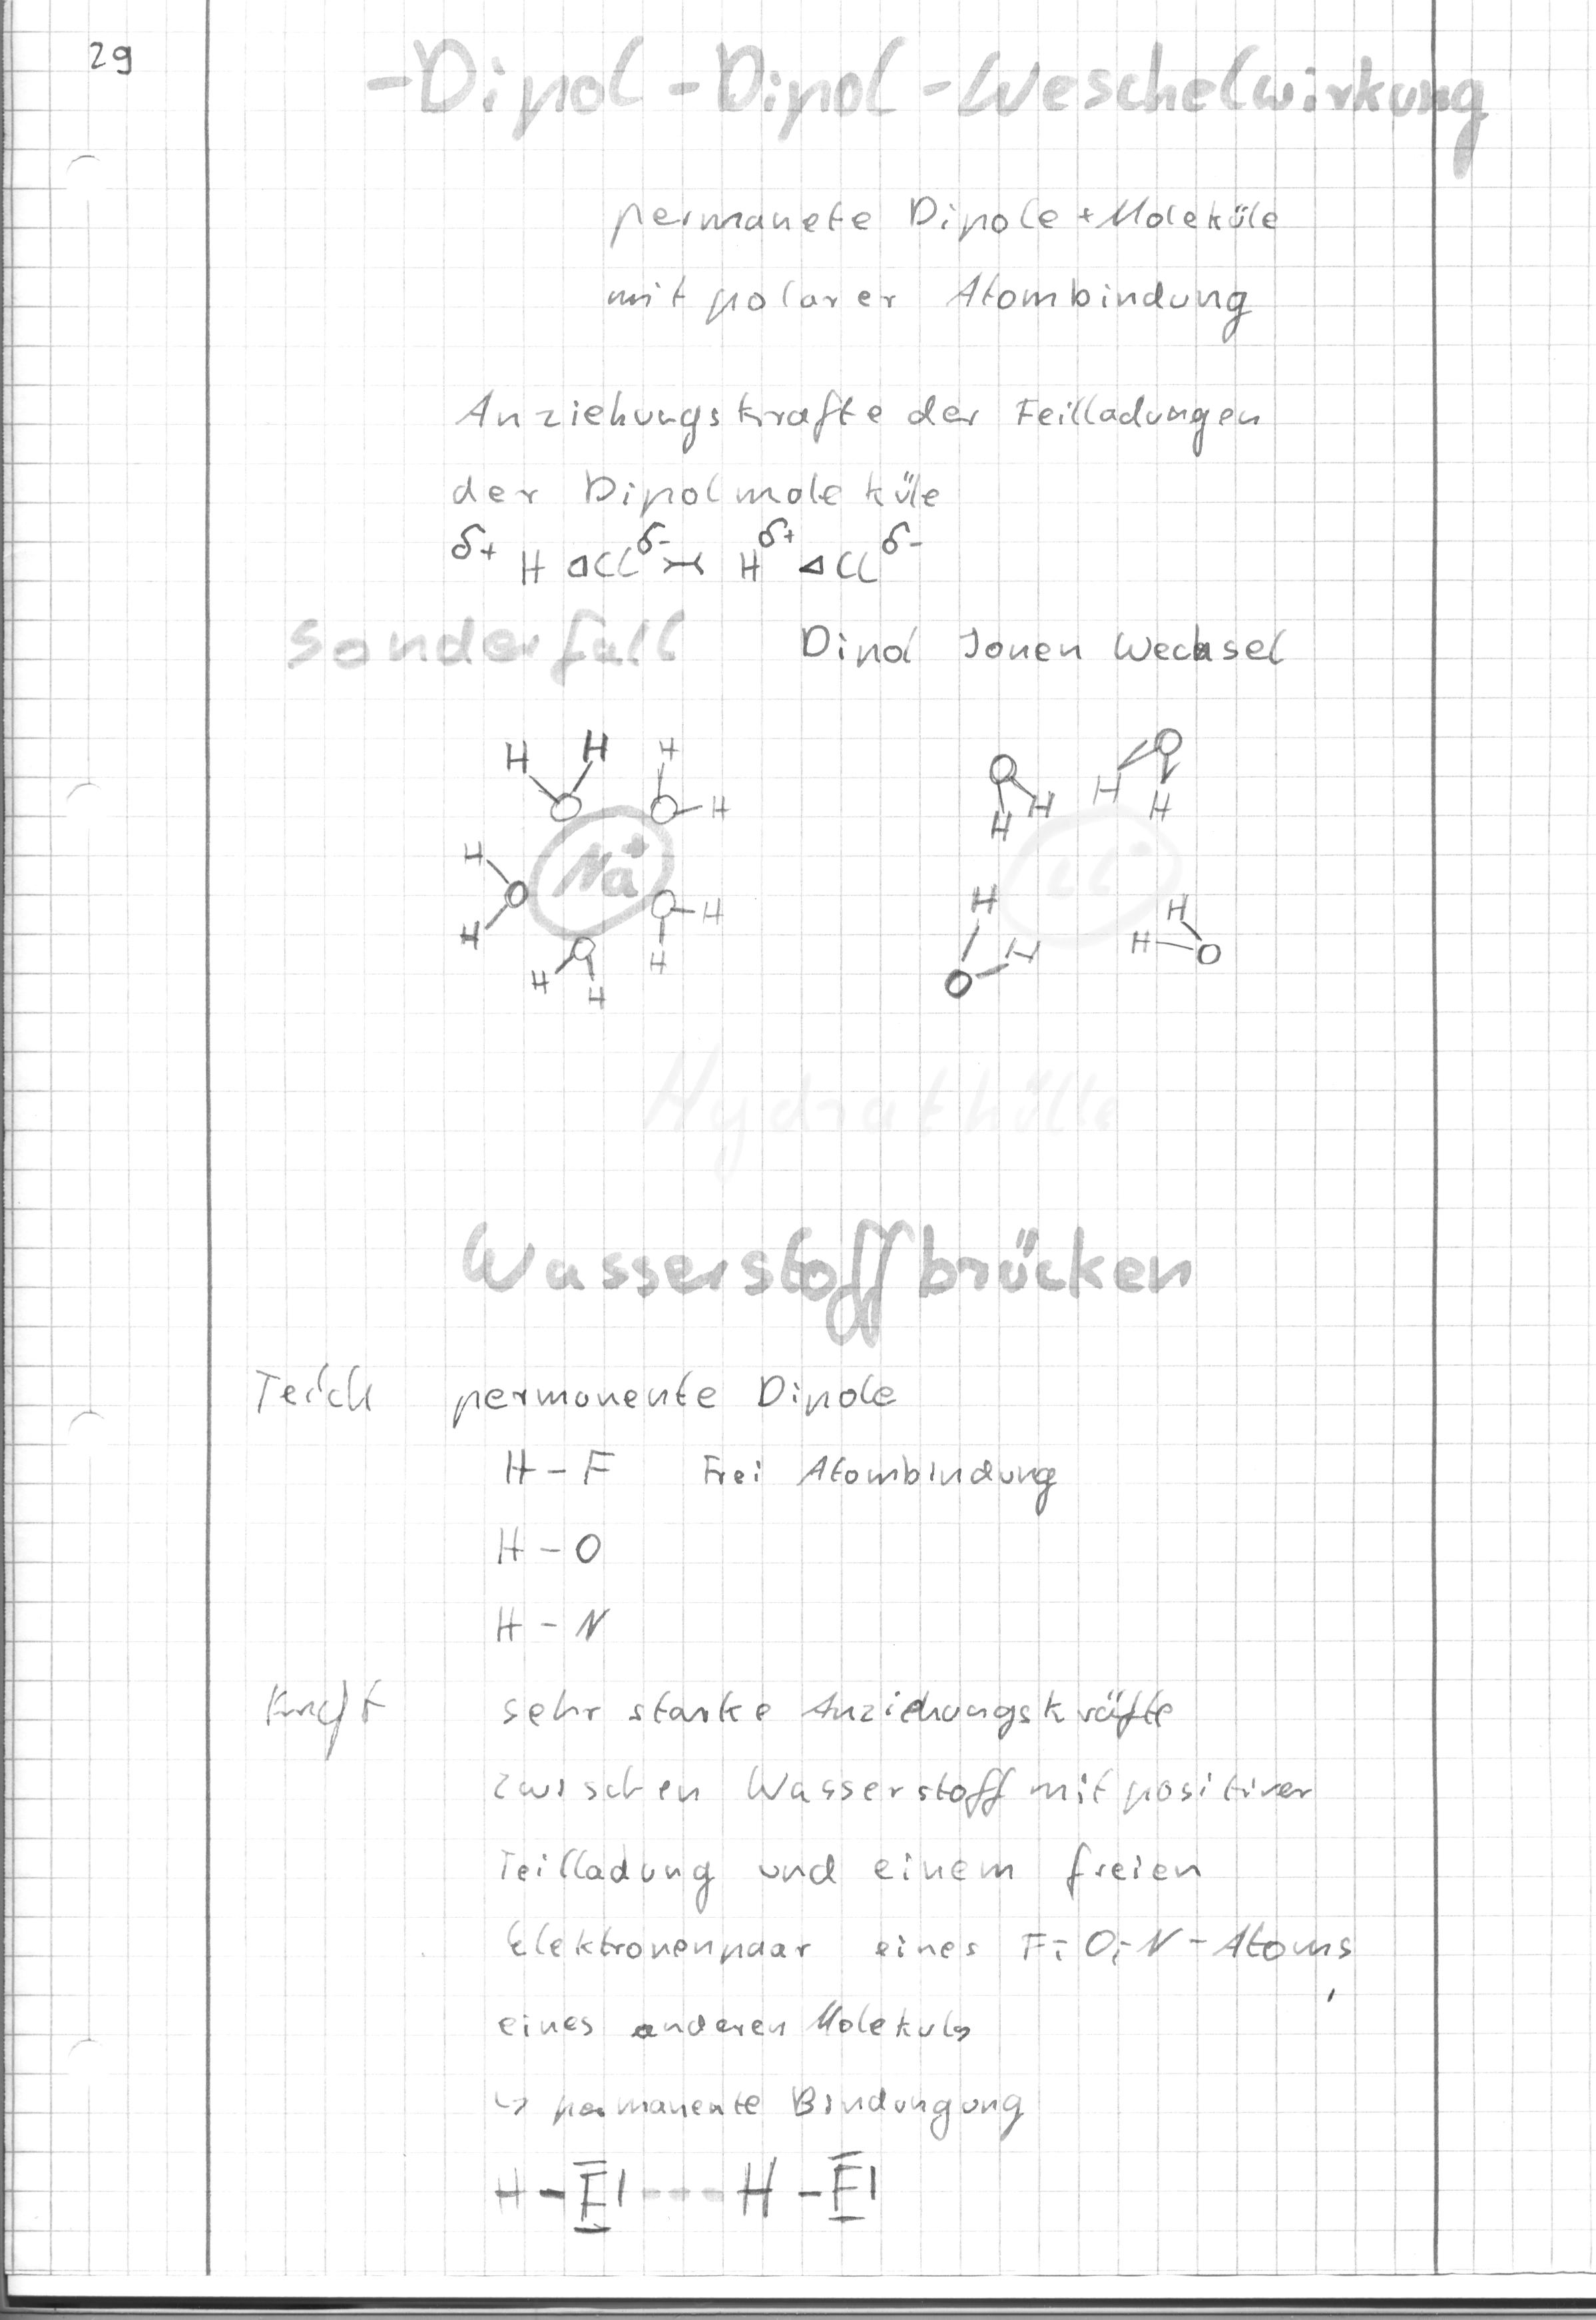 29
-Dipol-Dipol-Weschelwirkung
permanete Dipole + Moleküle
mit polarer Atombindung
Anziehungskrafte der Feilladungen
der Dipolmoleküle
δ+ H ◁Cl δ- >-< H δ+ ◁Cl δ-
Sonderfall Dipol Ionen Wechsel
H H H O H
O O H H O H H
H Na+ O H H H
O H H O
H O H H H O
H H
Hydrathülle
Wasserstoffbrücken
Teilch permanente Dipole
H - F Frei Atombindung
H - O
H - N
Kraft sehr starke Anziehungskräfte
zwischen Wasserstoff mit positiver
Teilladung und einem freien
Elektronenpaar eines F-; O-; N-Atoms
eines anderen Molekuls
↳ permanente Bindungung
H - F| --- H - F|